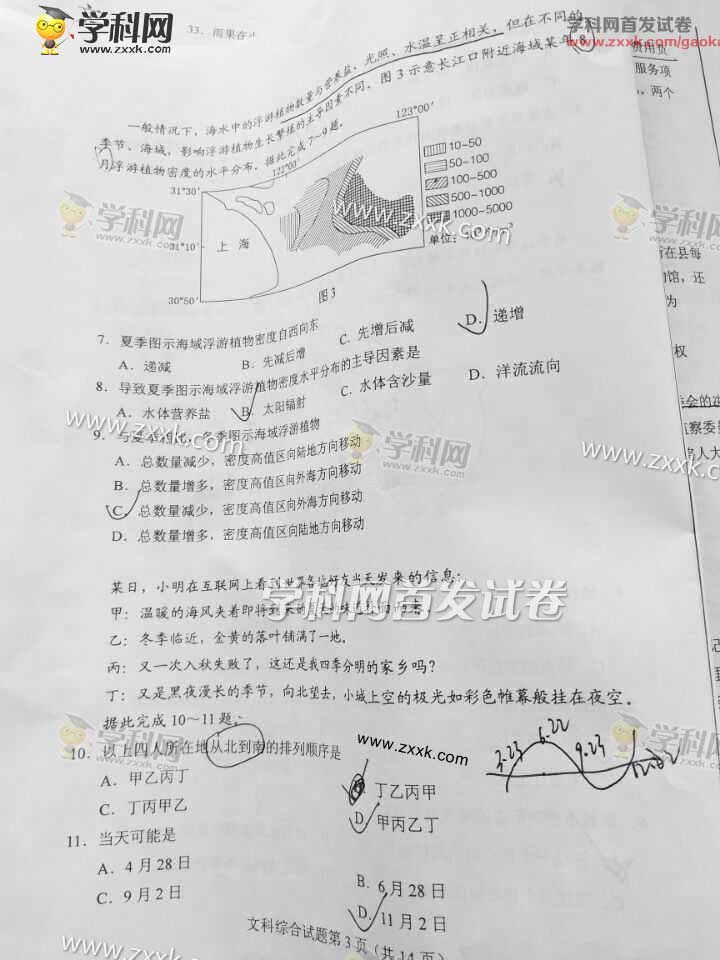 学科网
www.zxxk.com
33．雨果在
学科网首发试卷
www.zxxk.com/gaokao
费用负
服务项
两个
一般情况下，海水中的浮游植物数量与营养盐、光照、水温呈正相关，但在不同的
季节、海域，影响浮游植物生长繁殖的主导因素不同。图3示意长江口附近海域某年8
月浮游植物密度的水平分布。据此完成7～9题。
122°00′
123°00′
31°30′
31°10′
30°50′
上海
10~50
50~100
100~500
500~1000
1000~5000
单位：
图3
所在县每
馆，还
为
权
7．夏季图示海域浮游植物密度自西向东
A．递减
B．先减后增
C．先增后减
D．递增
8．导致夏季图示海域浮游植物密度水平分布的主导因素是
A．水体营养盐
B．太阳辐射
C．水体含沙量
D．洋流流向
9．与夏季相比，冬季图示海域浮游植物
A．总数量减少，密度高值区向陆地方向移动
B．总数量增多，密度高值区向外海方向移动
C．总数量减少，密度高值区向外海方向移动
D．总数量增多，密度高值区向陆地方向移动
某日，小明在互联网上看到世界各地好友当天发来的信息：
甲：温暖的海风夹着即将到来的
乙：冬季临近，金黄的落叶铺满了一地。
丙：又一次入秋失败了，这还是我四季分明的家乡吗？
丁：又是黑夜漫长的季节，向北望去，小城上空的极光如彩色帷幕般挂在夜空。
据此完成10～11题。
学科网首发试卷
10．以上四人所在地从北到南的排列顺序是
A．甲乙丙丁
B．丁乙丙甲
C．丁丙甲乙
D．甲丙乙丁
3.23
6.22
9.23
12.22
11．当天可能是
A．4月28日
B．6月28日
C．9月2日
D．11月2日
文科综合试题第3页（共14页）